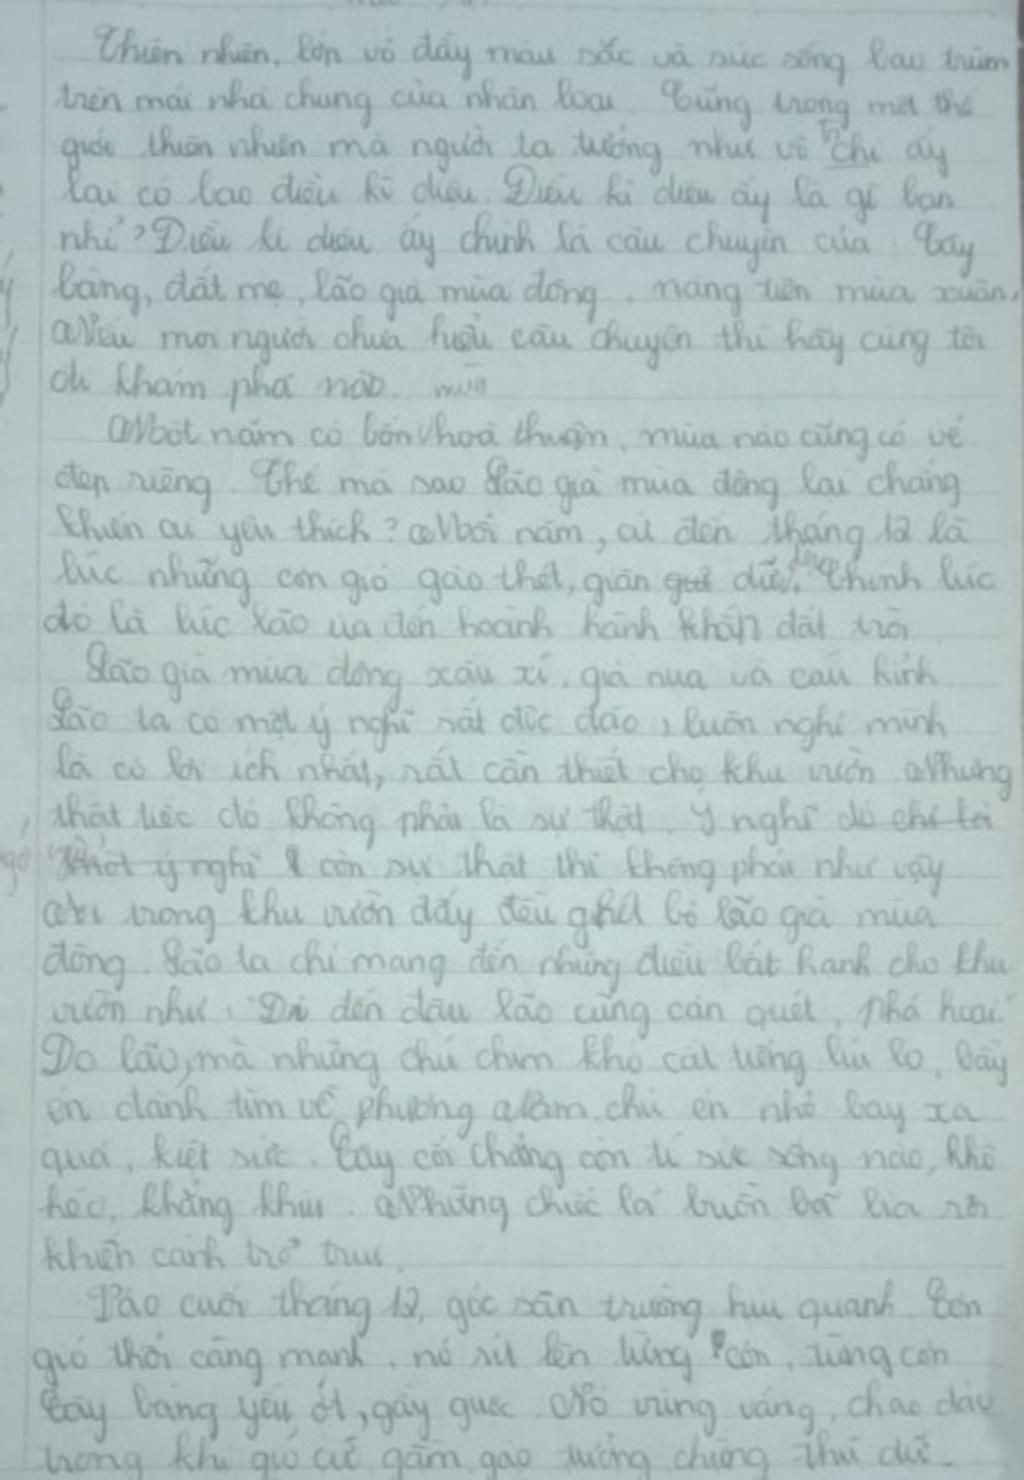 Thiên nhiên, lớn vô đầy màu sắc và sức sống bao trùm
trên mái nhà chung của nhân loại. Cũng trong một thế
giới thiên nhiên mà người ta tưởng như vô tri ấy
lại có bao điều kì diệu. Điều kì diệu ấy là gì bạn
nhỉ? Điều kì diệu ấy chính là câu chuyện của: Cây
bàng, đất mẹ, lão già mùa đông, nàng tiên mùa xuân,
Nếu mọi người chưa hiểu câu chuyện thì hãy cùng tôi
đi khám phá nào.
Một năm có bốn mùa hoà thuận, mùa nào cũng có vẻ
đẹp riêng. Thế mà sao Lão già mùa đông lại chẳng
khiến ai yêu thích? Mỗi năm, cứ đến tháng 12 là
lúc những cơn gió gào thét, giận dữ. Chính lúc
đó là lúc Lão ùa đến hoành hành khắp đất trời
Lão già mùa đông xấu xí, già nua và cáu kỉnh
Lão ta có một ý nghĩ rất độc đáo, luôn nghĩ mình
là có lợi ích nhất, rất cần thiết cho khu vườn. Nhưng
thật tiếc đó không phải là sự thật. Ý nghĩ đó chỉ là
một ý nghĩ còn sự thật thì không phải như vậy
Ai trong khu vườn đấy đều ghét bỏ lão già mùa
đông. Lão ta chỉ mang đến những điều bất hạnh cho khu
vườn như: Đi đến đâu lão cũng càn quét, phá hoại.
Do lão, mà những chú chim khó cất tiếng líu lo, bầy
én đành tìm về phương Nam, chú én nhỏ bay xa
quá, kiệt sức. Cây cối chẳng còn tí sức sống nào, khô
héo, khẳng khiu. Những chiếc lá buồn bã lìa rời
khiến cành trơ trụi.
Vào cuối tháng 12, góc sân trường hiu quạnh. Cơn
gió thổi càng mạnh, nó rít lên từng cơn, từng cơn
Cây bàng yếu ớt, gầy guộc. Nó vùng vằng, chao đảo
trong khi gió cứ gầm gào tưởng chừng thú dữ.